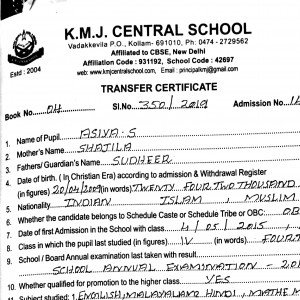 K.M.J. CENTRAL SCHOOL
Vadakkevila P.O., Kollam- 691010, Ph: 0474 - 2729562
Affiliated to CBSE, New Delhi
Affiliation Code : 931192, School Code : 42697
www.kmjcentralschool.com, Email : principalkmj@gmail.com
Estd : 2004
TRANSFER CERTIFICATE
Book No. 04 Sl.No. 350/2019 Admission No.
1. Name of Pupil ASIYA.S
2. Mother's Name SHAJILA
3. Fathers/ Guardian's Name SUDHEER
4. Date of birth. ( In Christian Era) according to admission & Withdrawal Register
(in figures) 20/04/2009 (in words) TWENTY FOUR TWO THOUSAND
5. Nationality INDIAN ISLAM, MUSLIM
6. Whether the candidate belongs to Schedule Caste or Schedule Tribe or OBC: OB
7. Date of first Admission in the School with class 4/05/2015
8. Class in which the pupil last studied (in figures) IV (in words) FOURT
9. School / Board Annual examination last taken with result
SCHOOL ANNUAL EXAMINATION - 201
10. Whether qualified for promotion to the higher class YES
11. Subject studied: 1. ENGLISH, MALAYALAM, HINDI, MATHEM